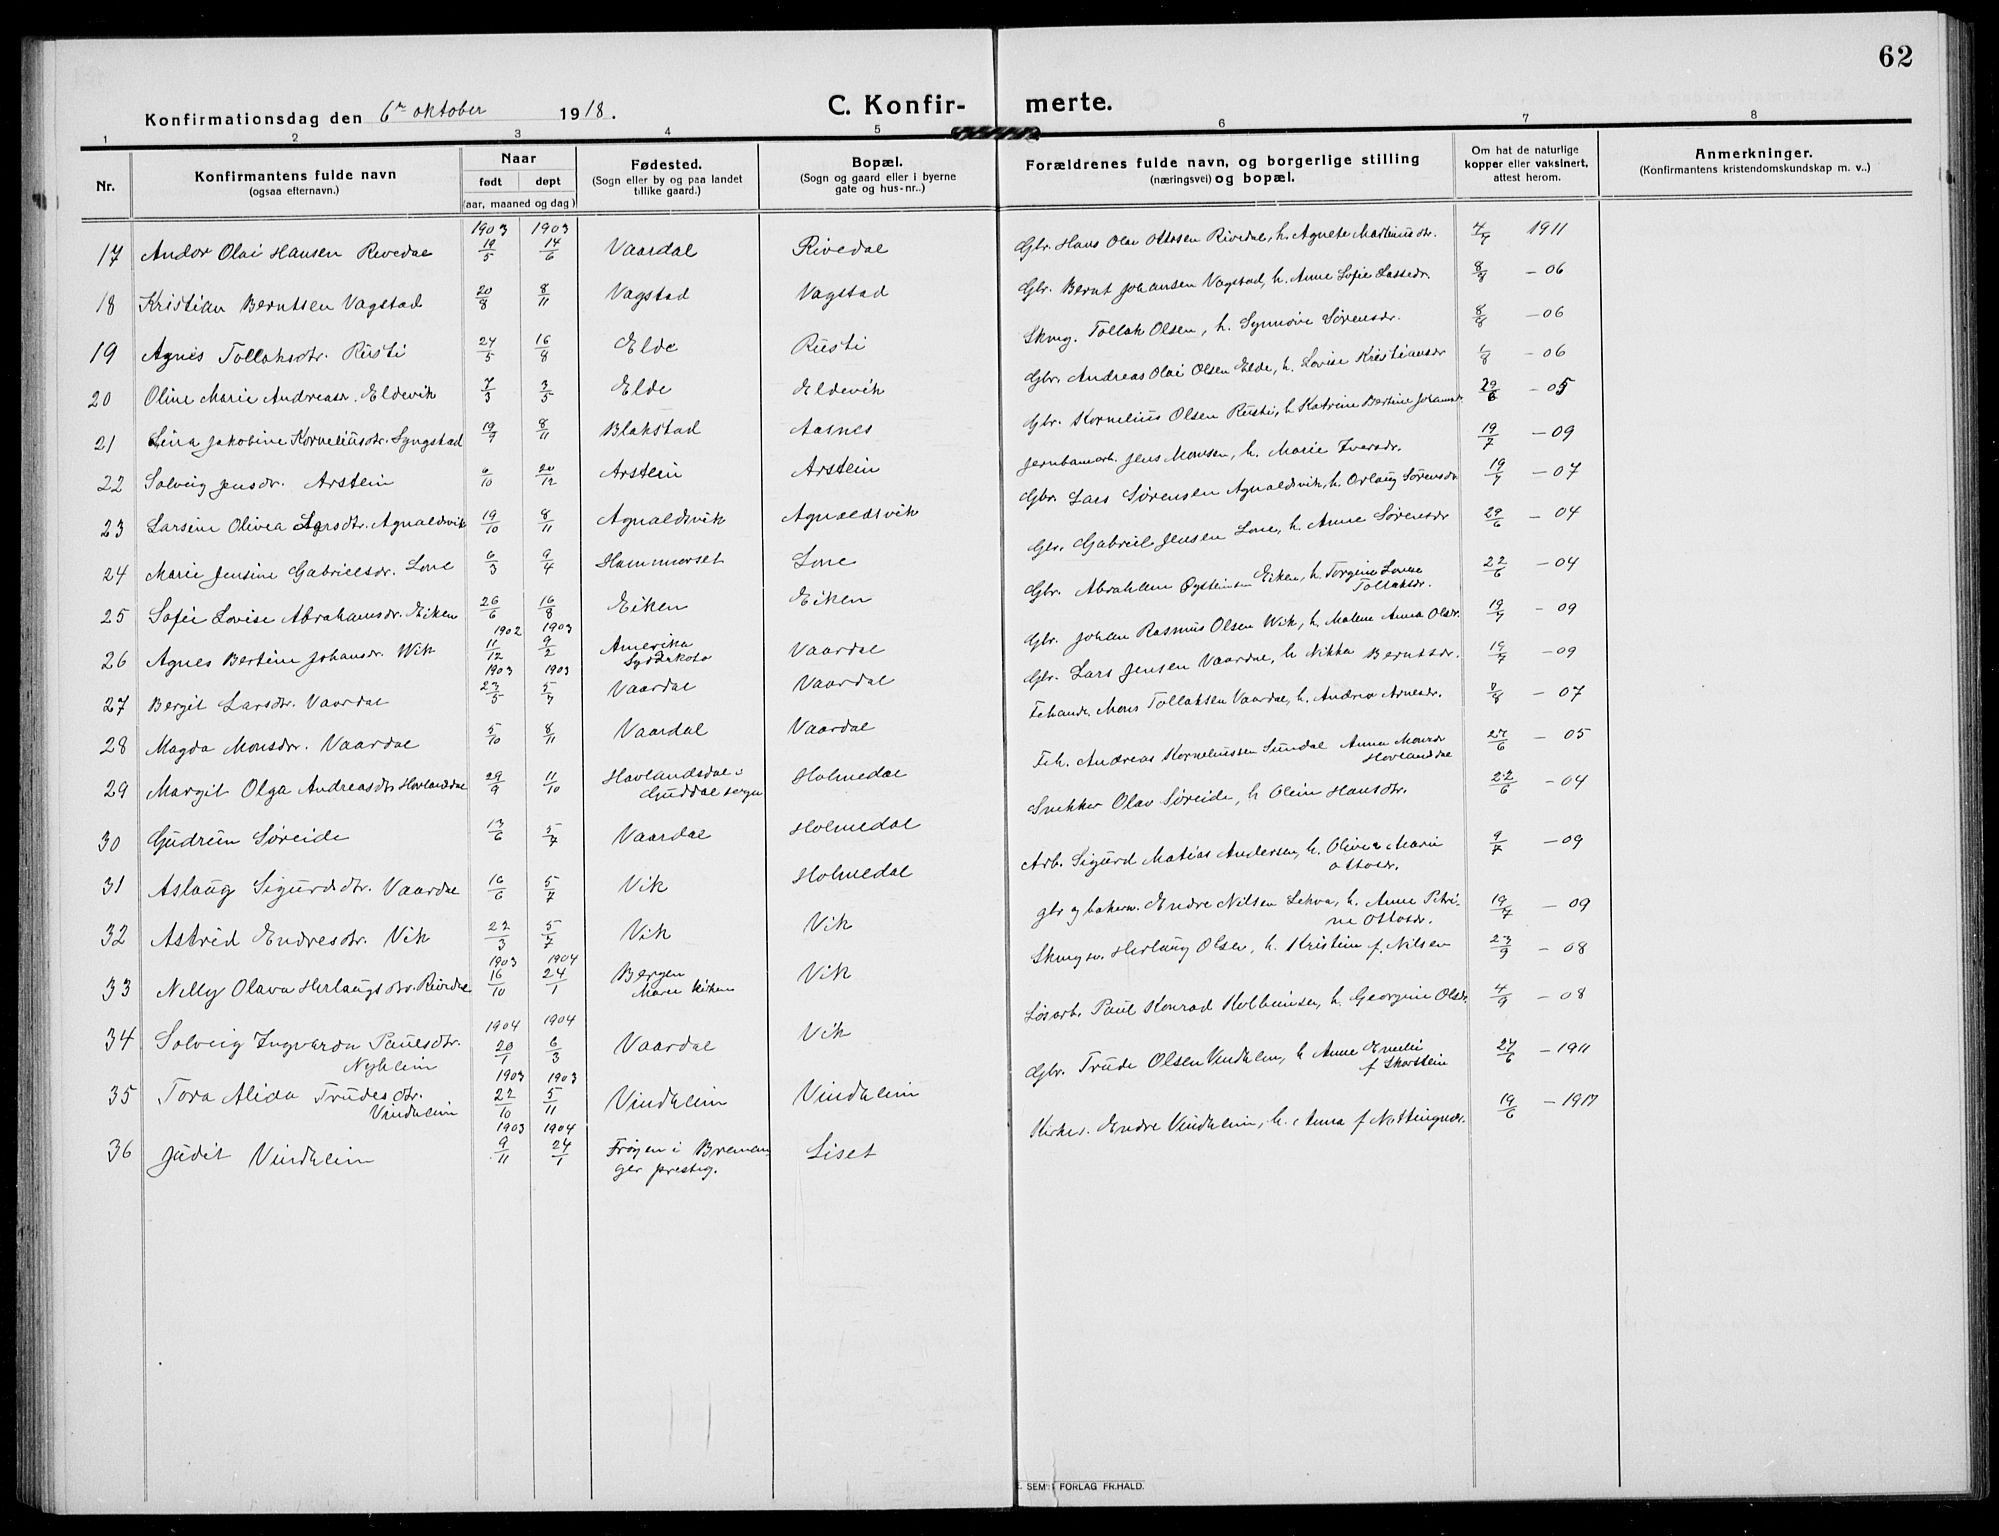 62
Konfirmationsdag den 6te oktober 1918.
C. Konfirmerte.
1 2 3 4 5 6 7 8
Nr.
Konfirmantens fulde navn
(ogsaa efternavn.)
Naar
født døpt
(aar, maaned og dag)
Fødested.
(Sogn eller by og paa landet
tillike gaard.)
Bopæl.
(Sogn og gaard eller i byerne
gate og hus-nr..)
Forældrenes fulde navn, og borgerlige stilling
(næringsvei) og bopæl.
Om hat de naturlige
kopper eller vaksinert,
attest herom.
Anmerkninger.
(Konfirmantens kristendomskundskap m. v..)
1903 1903
17 Andor Olai Hansen Rivedal 19/5 14/6 Vaardal Rivedal Gbr. Hans Olai Ottosen Rivedal, h. Agnete Martinusdtr. 4/7 1911
18 Kristian Berntsen Vagstad 20/8 8/11 Vagstad Vagstad Gbr. Bernt Johansen Vagstad, h. Anne Sofie Lassedr. 8/8 - 06
19 Agnes Tollaksdtr. Rusti 24/5 16/8 Elde Rusti Skmg. Tollak Olsen, h. Synnøve Sørensdr. 8/8 - 06
20 Oline Marie Andreasdr. Eldevik 7/3 3/5 Elde Eldevik Gbr. Andreas Olai Olsen Elde, h. Lovise Kristiansdr 1/8 - 06
21 Lina Jakobine Korneliusdtr. Lyngstad 19/9 8/11 Blakstad Aasnes Gbr. Kornelius Olsen Rusti, h. Katrine Bertine Johannesdr 29/6 - 05
22 Solveig Jensdr. Arstein 6/10 20/12 Arstein Arstein Jernbanearb. Jens Monsen, h. Marie Iversdr. 19/7 - 09
23 Larsine Olivea Larsdtr. Agnaldsvik 19/10 8/11 Agnaldsvik Agnaldsvik Gbr. Lars Sørensen Agnaldsvik, h. Orlaug Sørensdr 19/7 - 07
24 Marie Jensine Gabrielsdr. Lone 6/3 9/4 Hammerset Lone Gbr. Gabriel Jensen Lone, h. Anne Sørensdr 29/6 - 04
25 Sofie Lovise Abrahamsdr. Eiken 26/6 16/8 Eiken Eiken Gbr. Abraham Øysteinsen Eiken, h. Torgine Lovise
Tollaksdr. 22/6 - 04
1902 1903
26 Agnes Bertine Johansdr. Wik 11/12 9/2 Amerika
Syddakota Vaardal Gbr. Johan Rasmus Olsen Wik, h. Malene Anna Olsdr. 19/7 - 09
1903 1903
27 Bergit Larsdtr. Vaardal 23/5 5/7 Vaardal Vaardal Gbr. Lars Jensen Vaardal, h. Nikka Berntsdr. 19/7 - 09
28 Magda Monsdr. Vaardal 5/10 8/11 Vaardal Vaardal Fehandl. Mons Tollaksen Vaardal, h. Andrea Arnesdr. 8/8 - 07
29 Margit Olga Andreasdtr Hovlanddal 29/9 11/10 Hovlandsdal i
Guddal sogn Holmedal Feh. Andreas Korneliussen Sundal Anna Monsdr
Hovlanddal 27/6 - 05
30 Gudrun Søreide 13/6 5/7 Vaardal Holmedal Snekker Olav Søreide, h. Olein Hansdtr. 22/6 - 04
31 Aslaug Sigurdsdtr. Vaardal 16/6 5/7 Vik Holmedal Arb. Sigurd Matias Andersen, h. Olivea Marie
Ottosdr. 9/7 - 09
32 Astrid Endresdtr. Vik 22/3 5/7 Vik Vik gbr og bakerm. Endre Nilsen Lekva, h. Anne Petri-
ne Ottosdr. 19/7 - 09
1903 1904
33 Nelly Olava Herlaugsdtr. Rivedal 16/10 24/1 Bergen
Marie kirken Vik Skmgsv. Herlaug Olsen, h. Kristine f. Nilsen 23/9 - 08
1904 1904
34 Solveig Ingvarda Paulsdtr.
Nyheim 20/1 6/3 Vaardal Vik Løsarb. Paul Konrad Kolbeinsen, h. Georgine Olsdr 4/9 - 08
1903 1903
35 Tora Alida Trudesdtr.
Vindheim 22/10 5/11 Vindheim Vindheim Gbr. Trude Olsen Vindheim, h. Anne Emelie
f. Skorstein 27/6 - 1911
1903 1904
36 Judit Vindheim 9/11 24/1 Frøyen i Breman
ger prestg. Liset Kirkes. Endre Vindheim, h. Anna f. 19/6 - 1917
SEM FORLAG FR.HALD.